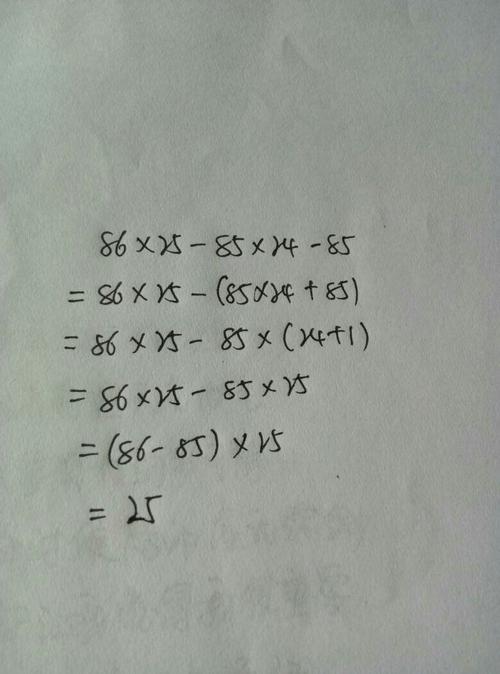 86×25-85×24-85
=86×25-(85×24+85)
=86×25-85×(24+1)
=86×25-85×25
=(86-85)×25
=25